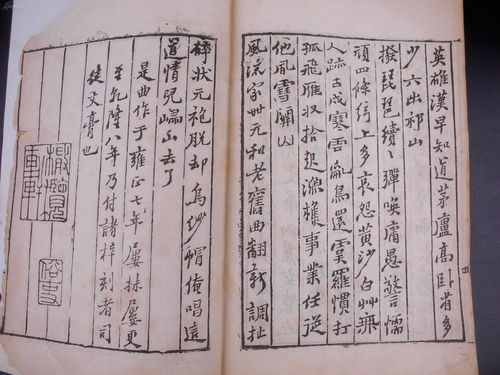 英雄漢早知道茅廬高臥省多
少六出祁山
撥琵琶續〻彈喚庸愚警懦
頑四條絃上多哀怨黃沙白艸無
人跡古戍寒雲亂鳥還虞羅慣打
孤飛雁收拾起漁樵事業任從
他風雪關山
風流家世元和老舊曲翻新調扯
碎狀元袍脫却烏紗帽俺唱這
道情兒歸山去了
是曲作于雍正七年屢抹屢更
至乾隆八年乃付諸梓刻者司
徒文膏也